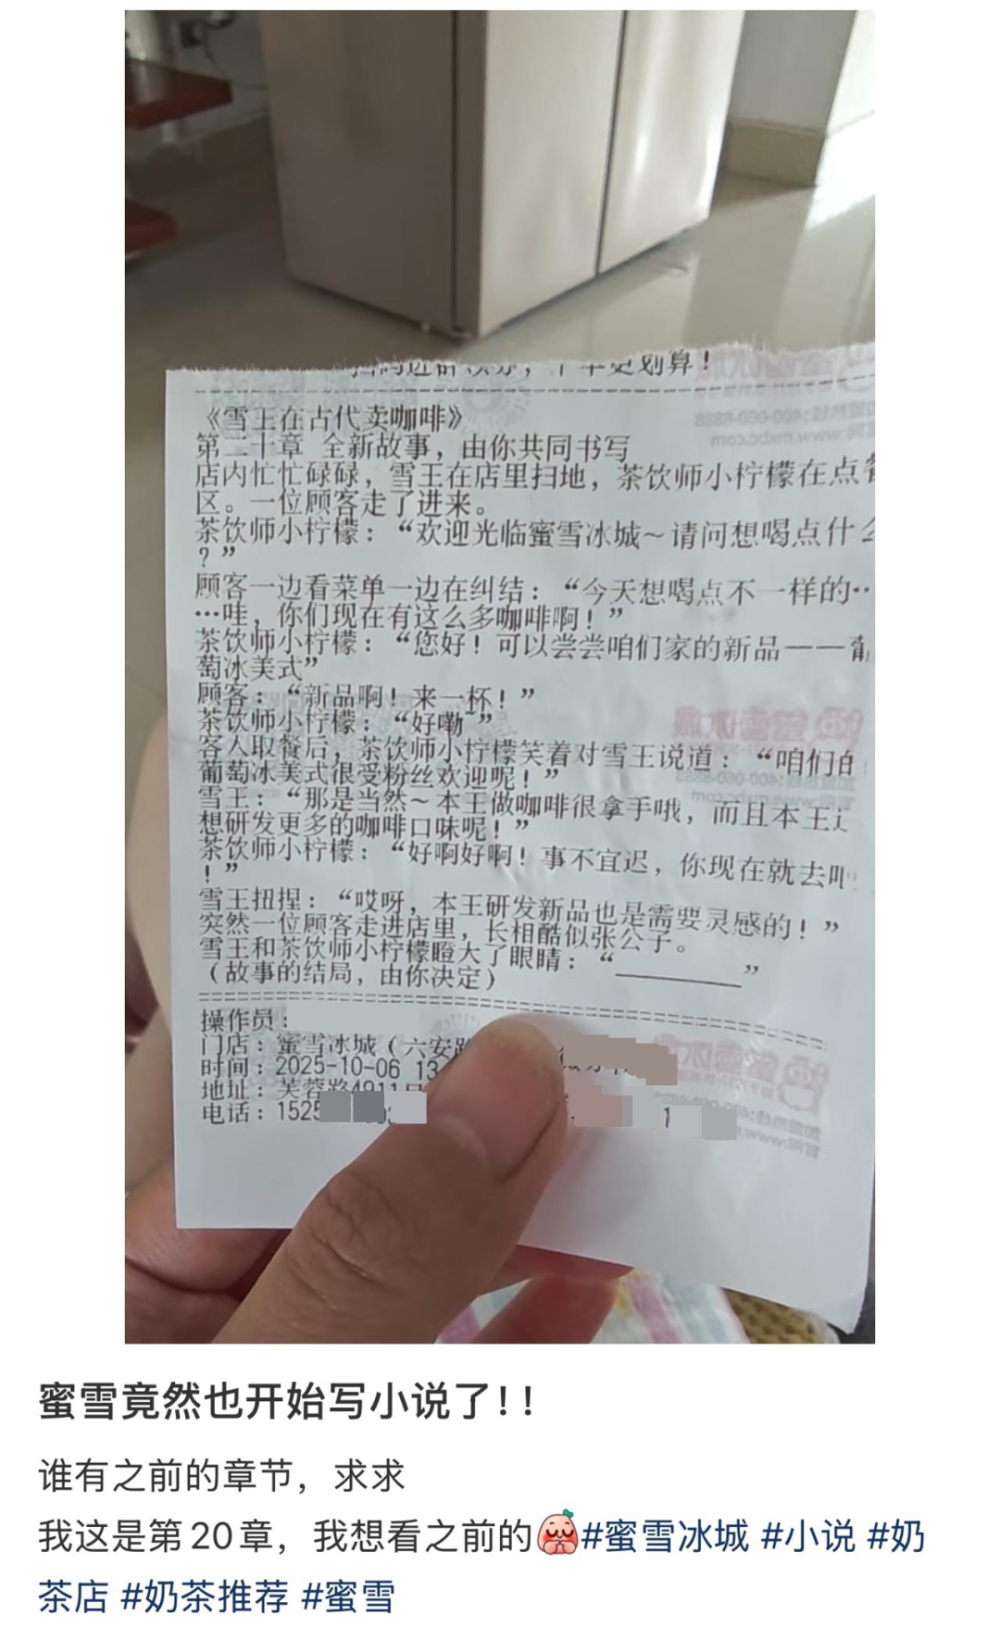 《雪王在古代卖咖啡》
第二十章 全新故事，由你共同书写
店内忙忙碌碌，雪王在店里扫地，茶饮师小柠檬在点餐
区。一位顾客走了进来。
茶饮师小柠檬：“欢迎光临蜜雪冰城~请问想喝点什么
？”
顾客一边看菜单一边在纠结：“今天想喝点不一样的…
…哇，你们现在有这么多咖啡啊！”
茶饮师小柠檬：“您好！可以尝尝咱们家的新品——葡
萄冰美式”
顾客：“新品啊！来一杯！”
茶饮师小柠檬：“好嘞”
客人取餐后，茶饮师小柠檬笑着对雪王说道：“咱们的
葡萄冰美式很受粉丝欢迎呢！”
雪王：“那是当然~本王做咖啡很拿手哦，而且本王还
想研发更多的咖啡口味呢！”
茶饮师小柠檬：“好啊好啊！事不宜迟，你现在就去吧
！”
雪王扭捏：“哎呀，本王研发新品也是需要灵感的！”
突然一位顾客走进店里，长相酷似张公子。
雪王和茶饮师小柠檬瞪大了眼睛：“________”
（故事的结局，由你决定）
操作员：
门店：蜜雪冰城（六安
时间：2025-10-06 13
地址：芙蓉路4911
电话：1525
蜜雪竟然也开始写小说了！！
谁有之前的章节，求求
我这是第20章，我想看之前的#蜜雪冰城 #小说 #奶
茶店 #奶茶推荐 #蜜雪